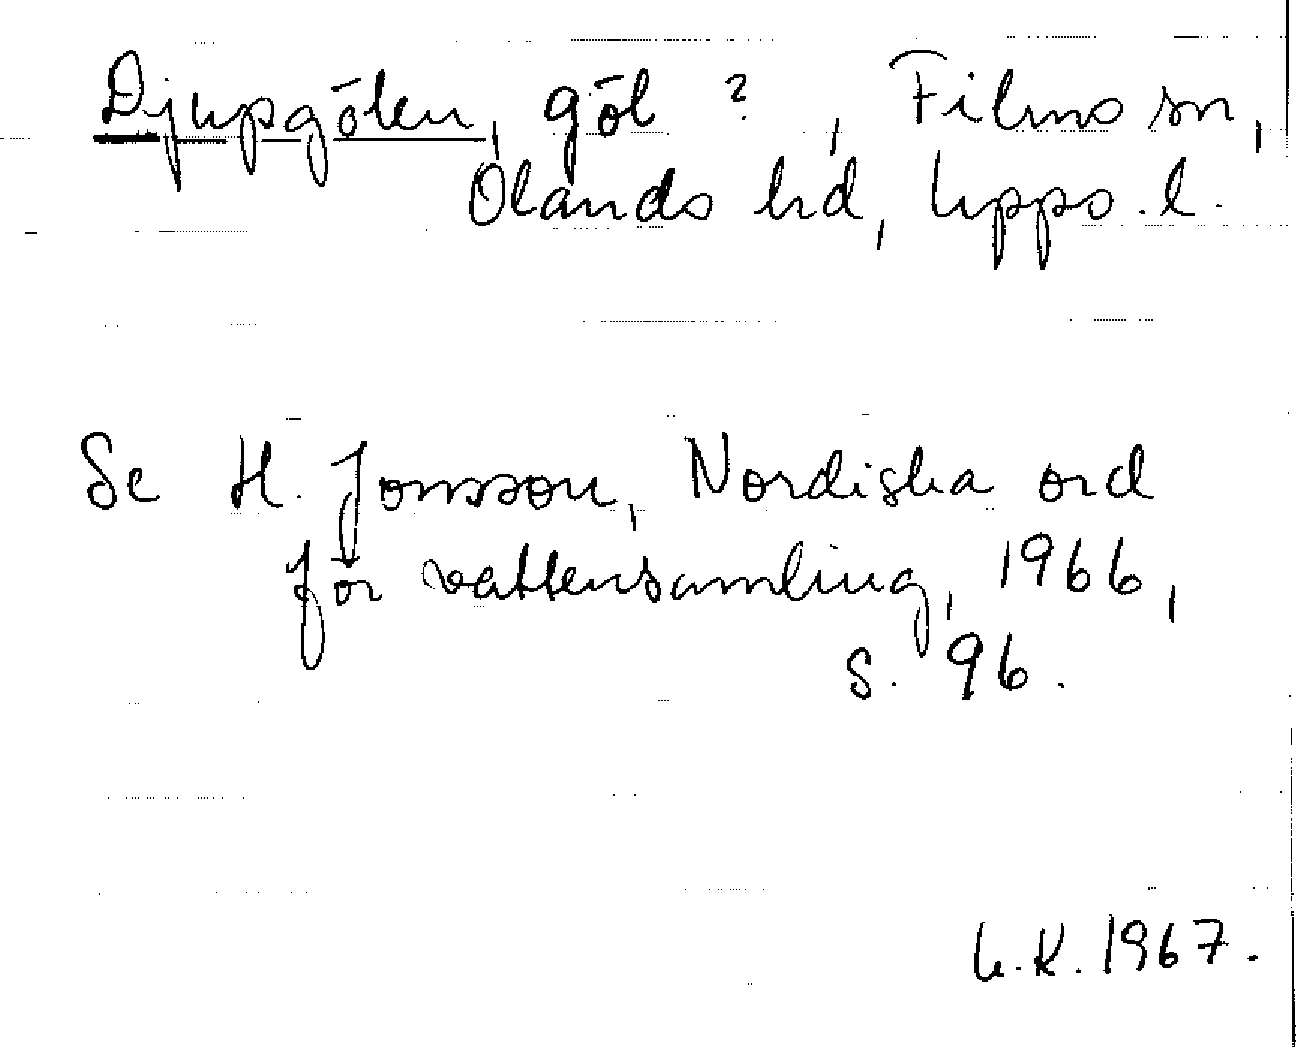 Djupgölen, göl ?, Films sn,
Ölands hd, Upps. l.
Se H. Jonsson, Nordiska ord
för vattensamling, 1966,
s. 96.
U.K. 1967.